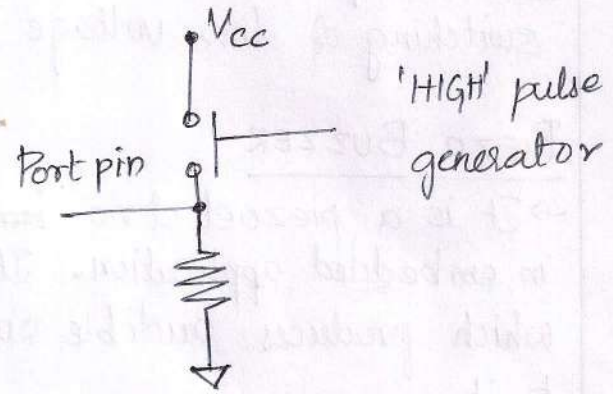 Vcc
'HIGH' pulse
generator
Port pin